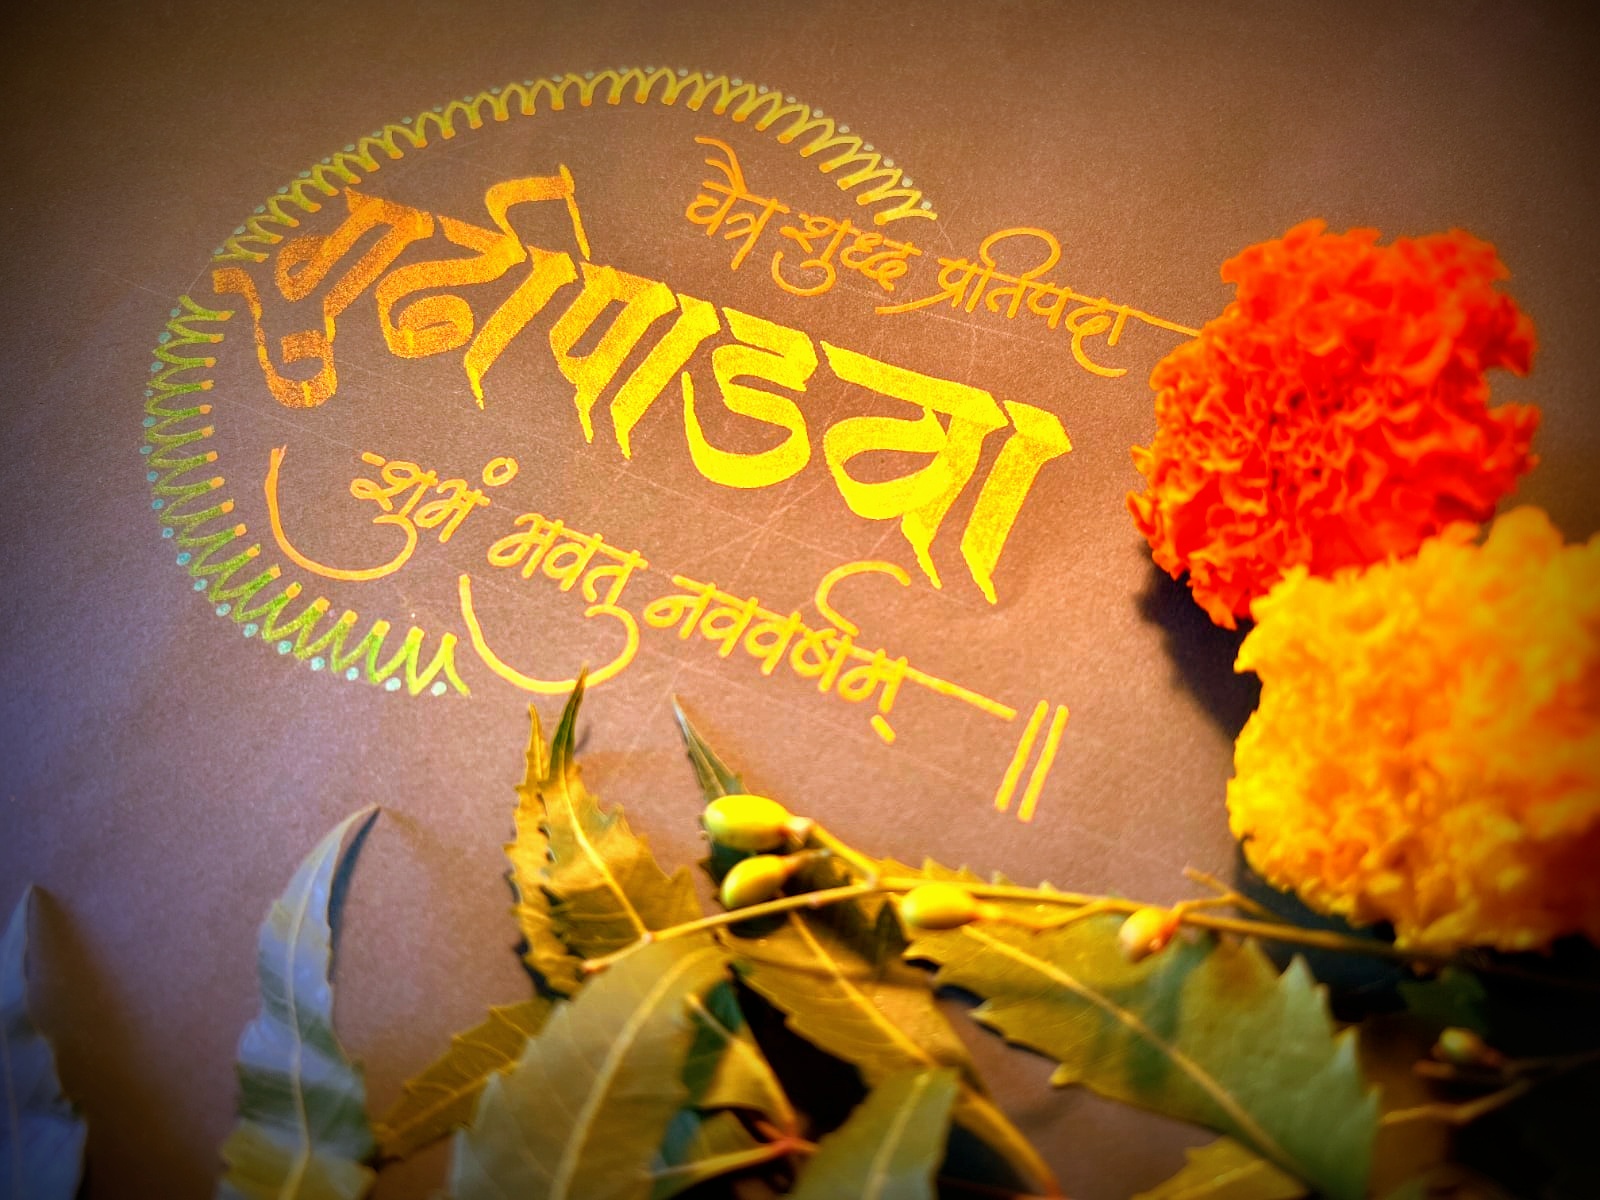 चैत्र शुध्द प्रतिपदा
गुढीपाडवा
शुभं भवतु नववर्षम् ||